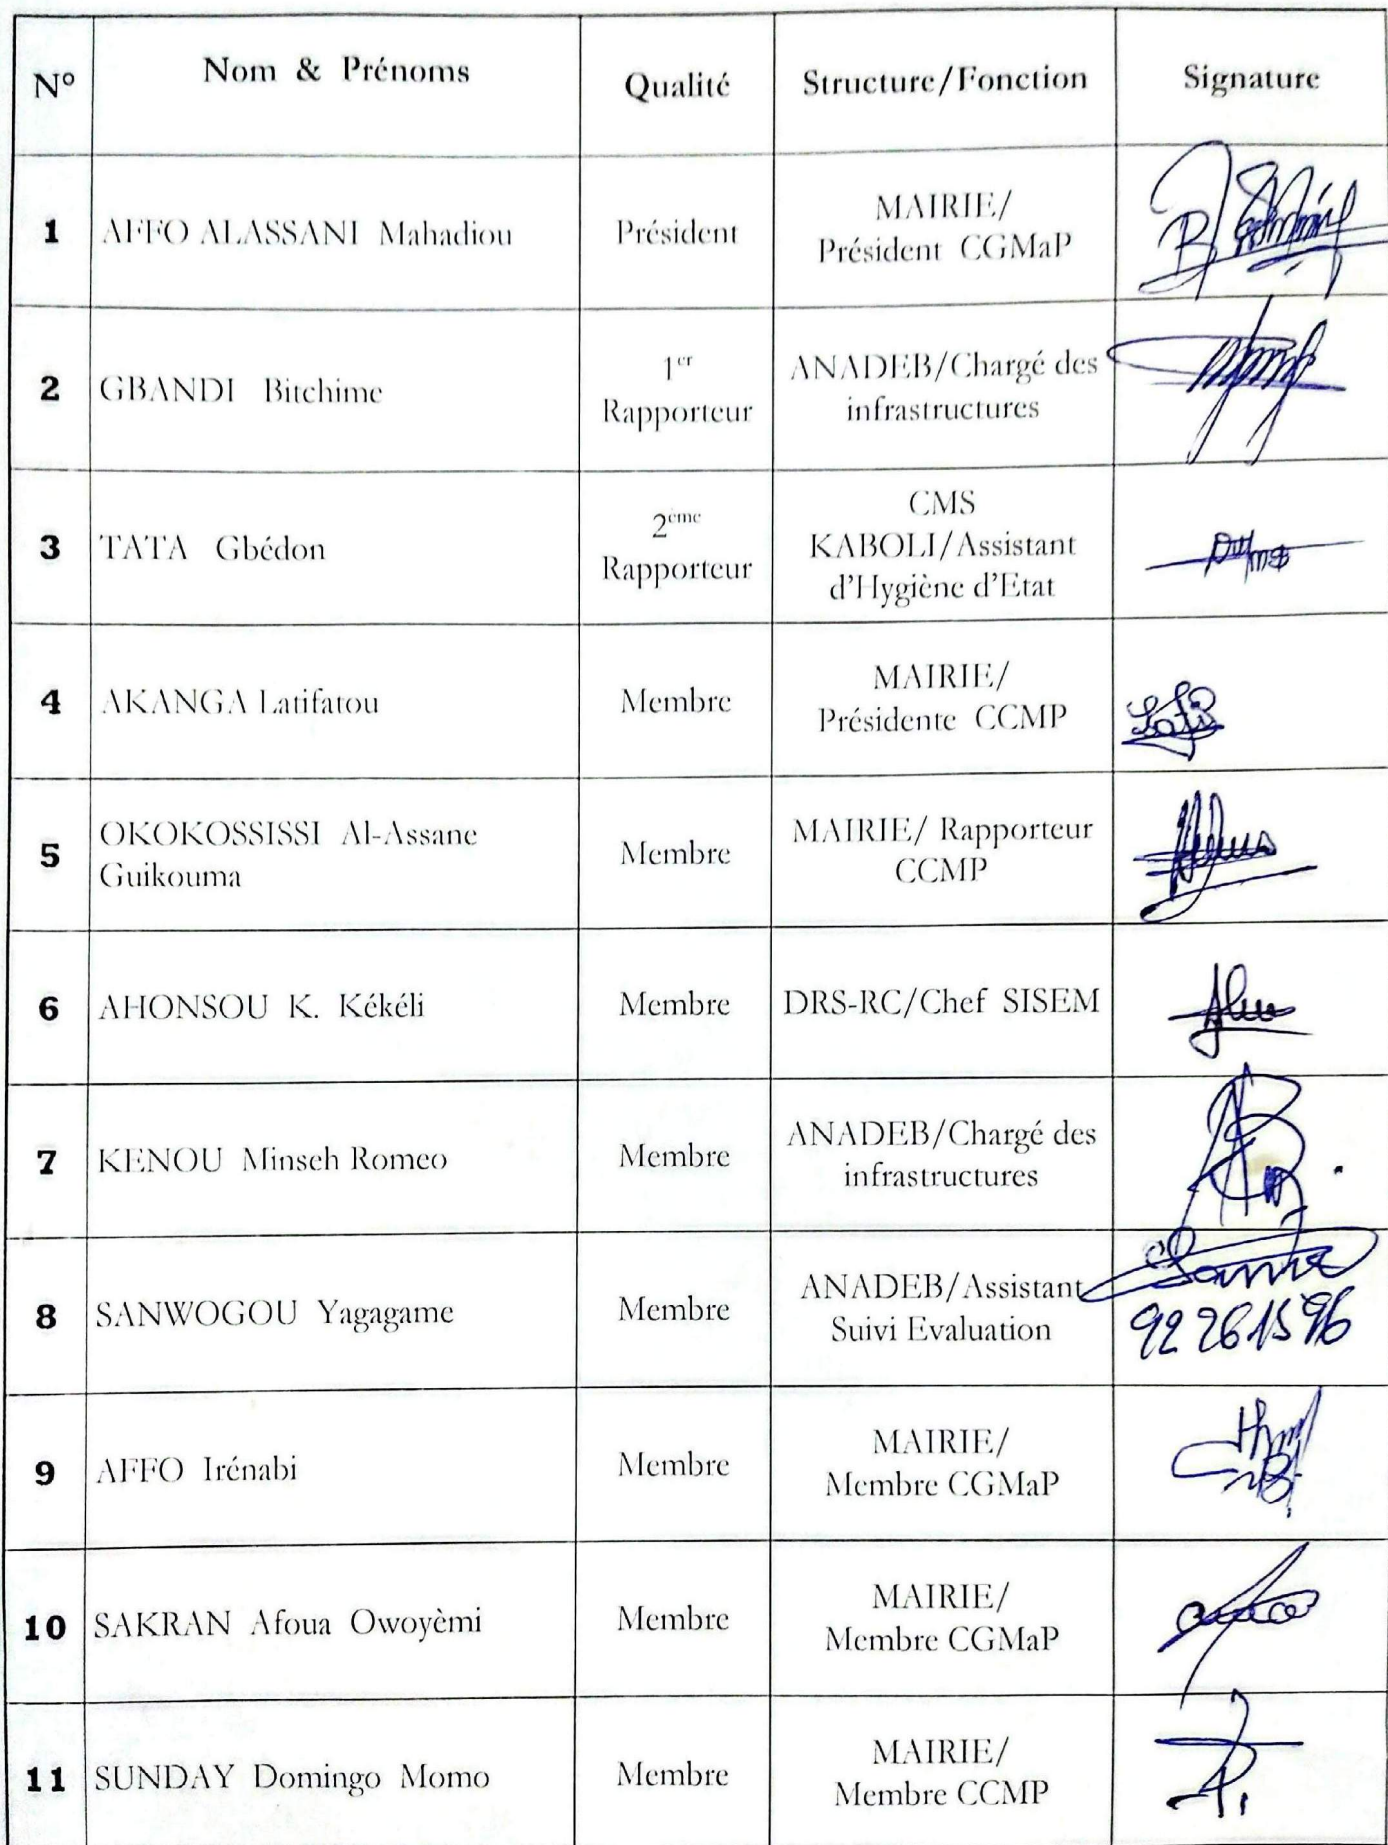 N°
Nom & Prénoms
Qualité
Structure/Fonction
Signature
1
AFFO ALASSANI Mahadiou
Président
MAIRIE/
Président CGMaP
2
GBANDI Bitchime
1er
Rapporteur
ANADEB/Chargé des
infrastructures
3
TATA Gbédon
2ème
Rapporteur
CMS
KABOLI/Assistant
d'Hygiène d'Etat
4
AKANGA Latifatou
Membre
MAIRIE/
Présidente CCMP
5
OKOKOSSISSI Al-Assane
Guikouma
Membre
MAIRIE/ Rapporteur
CCMP
6
AHONSOU K. Kékéli
Membre
DRS-RC/Chef SISEM
7
KENOU Minseh Romeo
Membre
ANADEB/Chargé des
infrastructures
8
SANWOGOU Yagagame
Membre
ANADEB/Assistant
Suivi Evaluation
92261596
9
AFFO Irénabi
Membre
MAIRIE/
Membre CGMaP
10
SAKRAN Afoua Owoyèmi
Membre
MAIRIE/
Membre CGMaP
11
SUNDAY Domingo Momo
Membre
MAIRIE/
Membre CCMP